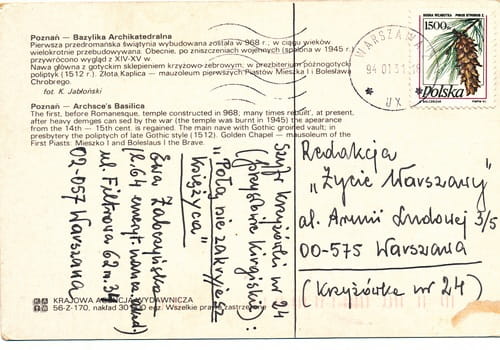 Poznań – Bazylika Archikatedralna
Pierwsza przedromańska świątynia wybudowana została w 968 r.; w ciągu wieków
wielokrotnie przebudowywana. Obecnie, po zniszczeniach wojennych (spalona w 1945 r.)
przywrócono wygląd z XIV-XV w.
Nawa główna z gotyckim sklepieniem krzyżowo-żebrowym, w prezbiterium późnogotycki
poliptyk (1512 r.). Złota Kaplica — mauzoleum pierwszych Piastów Mieszka I i Bolesława
Chrobrego.
fot. K. Jabłoński
Poznań – Archsce's Basilica
The first, before Romanesque, temple constructed in 968; many times rebuilt, at present,
after heavy demges can sed by the war (the temple was burnt in 1945) the appearance
from the 14th — 15th cent. is regained. The main nave with Gothic groired vault; in
presbytery the poliptych of late Gothic style (1512). Golden Chapel — mausoleum of the
First Piasts: Mieszko I and Boleslaus I the Brave.
Szyfr krzyżówki nr 24
(przysłowie kirgiskie):
"Połą nie zakryjesz
księżyca"
Ewa Zaborzyńska
l. 64 emeryt.
ul. Filtrowa 62 m. 34
02-057 Warszawa
KRAJOWA AGENCJA WYDAWNICZA
56-Z-170, nakład 30 000 egz. Wszelkie prawa zastrzeżone
WARSZAWA
94 01 31
UX
1500 zł
Polska
Redakcja
"Życie Warszawy"
al. Armii Ludowej 3/5
00-575 Warszawa
(Krzyżówka nr 24)